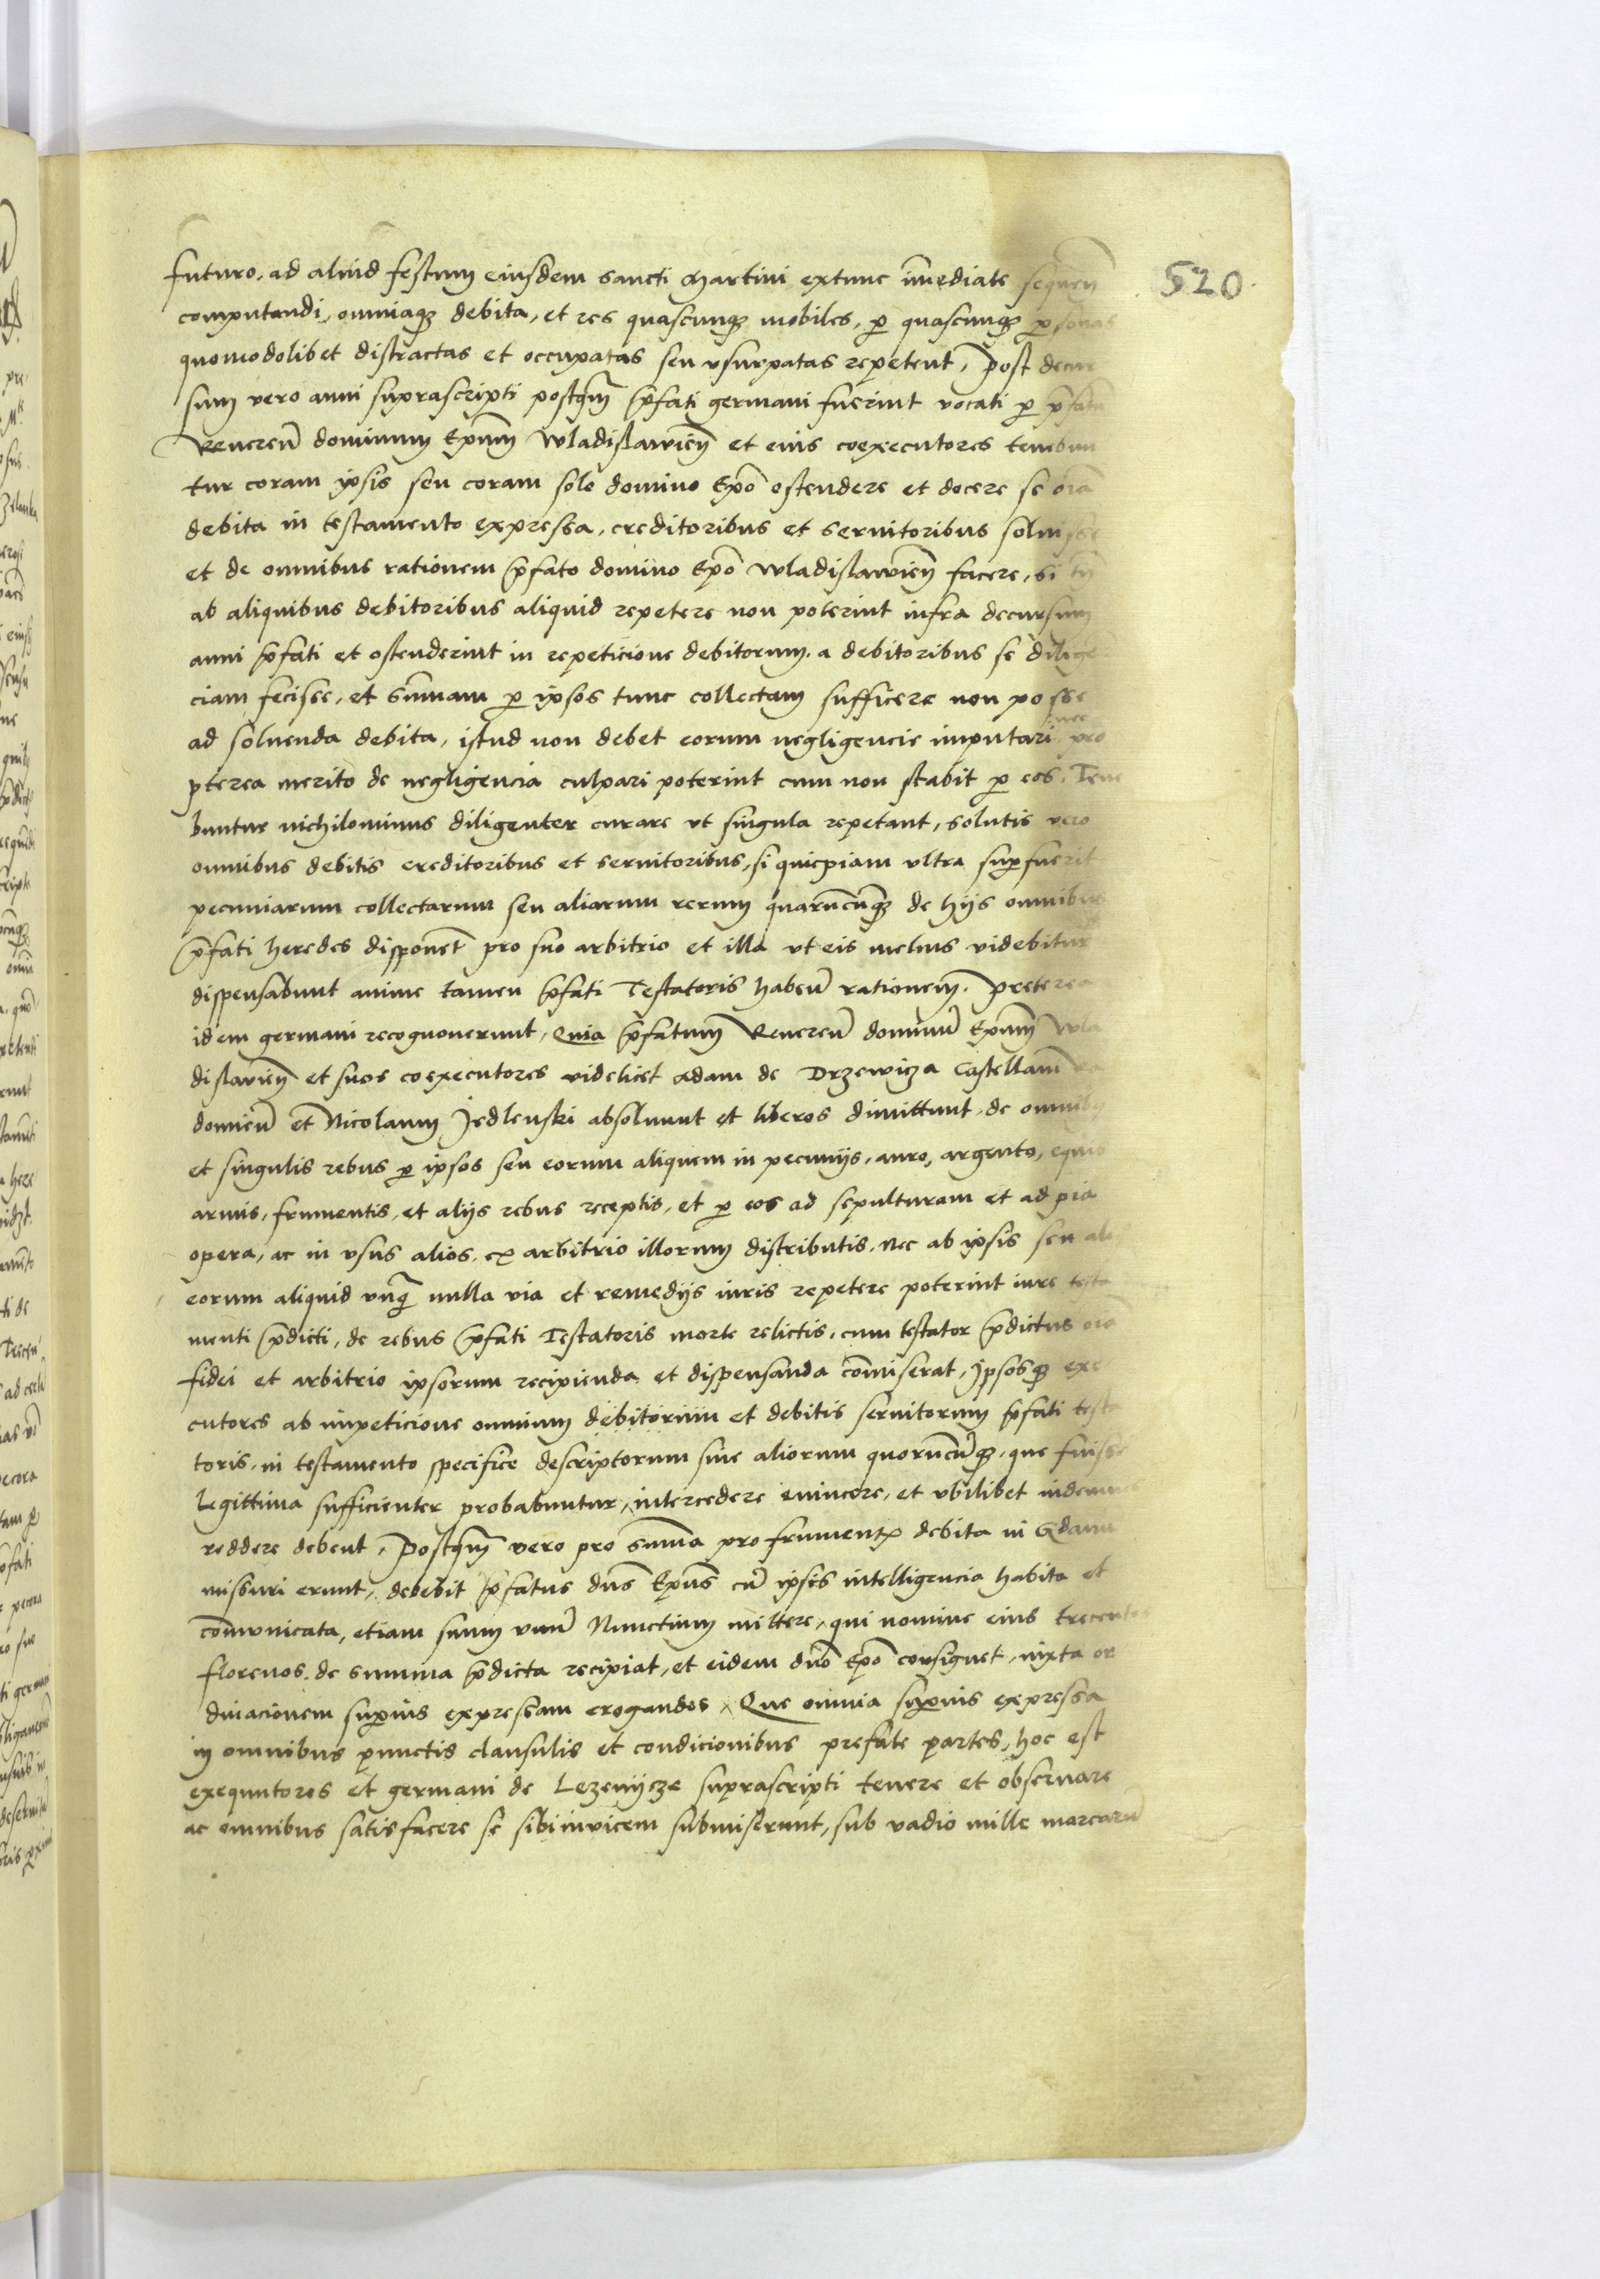 futuro, ad aliud festum eiusdem sancti Martini extunc im̄ediate sequen̄
520
computandi, omniaq₃ debita, et res quascunq₃ mobiles, ꝑ quascunq₃ ꝑsonas
quomodolibet distractas et occupatas seu vsurpatas repetent, Post decur
sum vero anni suprascripti postq̄m p̄fati germani fuerint vocati ꝑ p̄fatū
Reueren̄ dominum Ep̄um Wladislauien̄ et eius coexecutores tenebun
tur coram ipsis seu coram solo domino Ep̄o ostendere et docere se om̄ia
debita in testamento expressa, creditoribus et seruitoribus soluisse
et de omnibus rationem p̄fato domino Ep̄o Wladislauien̄ facere, si tn̄
ab aliquibus debitoribus aliquid repetere non poterint infra decursum
anni p̄fati et ostenderint in repeticione debitorum a debitoribus se dilige
ciam fecisse, et sum̄am ꝑ ipsos tunc collectam sufficere non posse
ad soluenda debita, istud non debet eorum negligencie imputari nec pro
pterea merito de negligencia culpari poterint cum non stabit ꝑ eos, Tene
buntur nichilominus diligenter curare vt singula repetant, solutis vero
omnibus debitis creditoribus et seruitoribus, si quicpiam vltra suꝑfuerit
pecuniarum collectarum seu aliarum rerum quarūcūq₃ de hijs omnibus
p̄fati heredes disponēt pro suo arbitrio et illa vt eis melius videbitur
dispensabunt anime tamen p̄fati Testatoris haben̄ rationem. Preterea
idem germani recognouerunt, Quia p̄fatum Reueren̄ dominū Ep̄um Wla
dislauien̄ et suos coexecutores videlicet Adam de Drzewicza Castellanū Ra
domien̄ et Nicolaum Jedlenski absoluunt et liberos dimittunt, de omnibus
et singulis rebus ꝑ ipsos seu eorum aliquem in pecunijs, auro, argento, equis
armis, frumentis, et alijs rebus receptis, et ꝑ eos ad sepulturam et ad pia
opera, ac in vsus alios, ex arbitrio illorum distributis, nec ab ipsis seu aliq
eorum aliquid vnq̄ nulla via et remedijs iuris repetere poterint iure testa
menti p̄dicti, de rebus p̄fati Testatoris morte relictis, cum testator p̄dictus om̄ia
fidei et arbitrio ipsorum recipienda et dispensanda com̄iserat, Ipsosq₃ exe
cutores ab impeticione omnium debitorum et debitis seruitorum p̄fati testa
toris, in testamento specifice descriptorum siue aliorum quorūcūq₃, que fuisse
legittima sufficienter probabuntur, intercedere euincere, et vbilibet indemnes
reddere debent, Postq̄m vero pro sum̄a pro frumentꝭ debita in Gdanu
missuri erunt, debebit p̄fatus dn̄s Ep̄us cū ipsis intelligencia habita et
com̄unicata, etiam suum vnū Nunctium mittere, qui nomine eius trecentos
florenos de summa p̄dicta recipiat, et eidem dn̄o Ep̄o consignet, iuxta or
dinacionem suꝑius expressam erogandos, Que omnia suꝑius expressa
in omnibus punctis clausulis et condicionibus prefate partes, hoc est
exequutores et germani de Lezenijcze suprascripti tenere et obseruare
ac omnibus satisfacere se sibi inuicem submiserunt, sub vadio mille marcarū